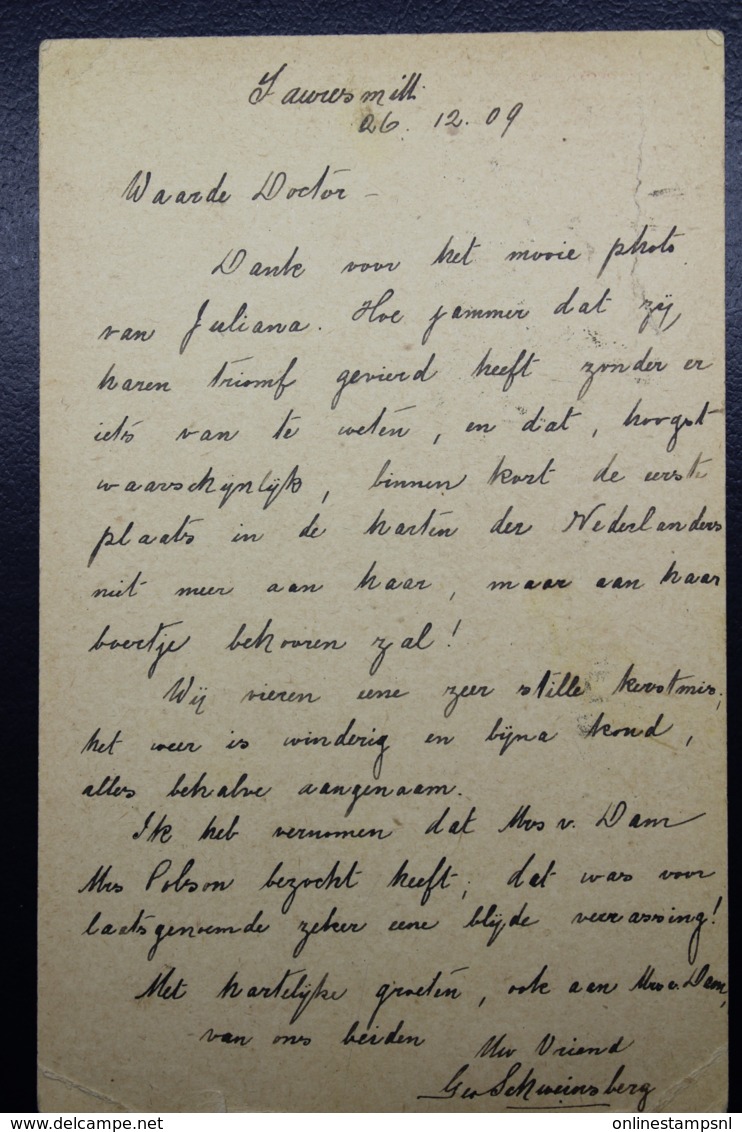 Jauresmith
26. 12. 09
Waarde Doctor –
Dank voor het mooie photo
van Juliana. Hoe jammer dat zij
haren triomf gevierd heeft zonder er
iets van te weten, en dat, hoogst
waarschijnlijk, binnen kort de eerste
plaats in de harten der Nederlanders
niet meer aan haar, maar aan haar
boertje behooren zal!
Wij vieren eene zeer stille kerstmis;
het weer is winderig en bijna koud,
alles behalve aangenaam.
Ik heb vernomen dat Mrs v. Dam
Mrs Pobson bezocht heeft; dat was voor
laatsgenoemde zeker eene blijde verrassing!
Met hartelijke groeten, ook aan Mrs v. Dam,
van ons beiden
Uw Vriend
Geo Schweinsberg
onlinestampsnl